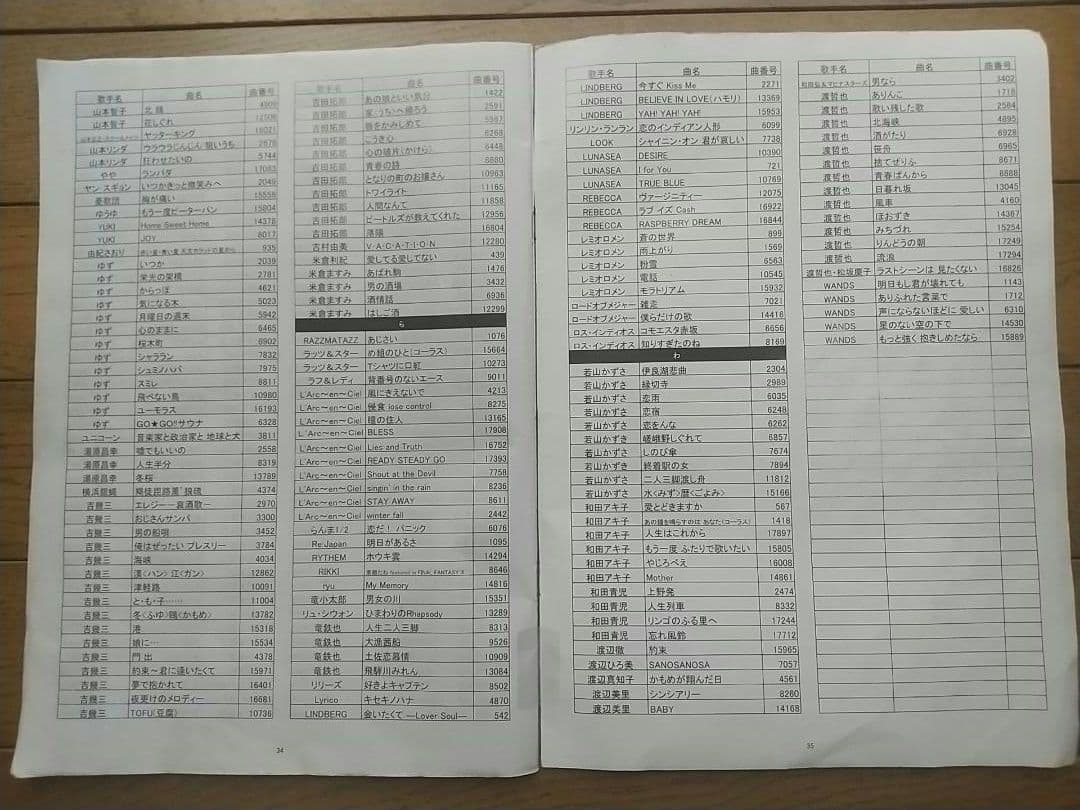 歌手名 曲名 曲番号
山本智子 北 4809
山本智子 花しぐれ 12506
ヤッターキング 18021
山本リンダ ウララウララじんじん 狙いうち 2676
山本リンダ 狂わせたいの 5744
やや ランバダ 17083
ヤン スギョン いつかきっと微笑みへ 2049
憂歌団 胸が痛い 15558
ゆうゆ もう一度ピーターパン 15804
YUKI Home Sweet Home 14378
YUKI JOY 8017
由紀さおり 935
ゆず いつか 2039
ゆず 栄光の架橋 2781
ゆず からっぽ 4621
ゆず 気になる木 5023
ゆず 月曜日の週末 5942
ゆず 心のままに 6465
ゆず 桜木町 6902
ゆず シャララン 7832
ゆず シュミのハバ 7975
ゆず スミレ 8811
ゆず 飛べない鳥 10980
ゆず ユーモラス 16193
ゆず GO★GO!!サウナ 6328
ユニコーン 音楽家と政治家と 地球と犬 3811
湯原昌幸 嘘でもいいの 2558
湯原昌幸 人生半分 8319
湯原昌幸 冬桜 13789
横浜銀蝿 4374
吉幾三 エレジー―哀酒歌― 2970
吉幾三 おじさんサンバ 3300
吉幾三 男の船唄 3452
吉幾三 俺はぜったい プレスリー 3784
吉幾三 海峡 4034
吉幾三 漢<ハン> 江<ガン> 12862
吉幾三 津軽路 10091
吉幾三 と・も・子…… 11004
吉幾三 冬<ふゆ>鴎<かもめ> 13782
吉幾三 港 15318
吉幾三 娘に… 15534
吉幾三 門出 4378
吉幾三 約束～君に逢いたくて 15971
吉幾三 夢で抱かれて 16401
吉幾三 夜更けのメロディー 16681
吉幾三 TOFU(豆腐) 10736
歌手名 曲名 曲番号
吉田拓郎 あの娘といい気分 1422
吉田拓郎 家<うち>へ帰ろう 2591
吉田拓郎 唇をかみしめて 5587
吉田拓郎 こうき心 6268
吉田拓郎 心の破片(かけら) 6448
吉田拓郎 青春の詩 8880
吉田拓郎 となりの町のお嬢さん 10963
吉田拓郎 トワイライト 11165
吉田拓郎 人間なんて 11858
吉田拓郎 ビートルズが教えてくれた 12956
吉田拓郎 落陽 16804
吉村由美 V・A・C・A・T・I・O・N 12280
米倉利紀 愛してる愛してない 439
米倉ますみ あばれ駒 1476
米倉ますみ 男の酒場 3432
米倉ますみ 酒情話 6936
米倉ますみ はしご酒 12299
ら
RAZZMATAZZ あじさい 1076
ラッツ＆スター め組のひと(コーラス) 15664
ラッツ＆スター Tシャツに口紅 10273
ラフ＆レディ 背番号のないエース 9011
L'Arc～en～Ciel 風にきえないで 4213
L'Arc～en～Ciel 侵食 lose control 8275
L'Arc～en～Ciel 瞳の住人 13165
L'Arc～en～Ciel BLESS 17908
L'Arc～en～Ciel Lies and Truth 16752
L'Arc～en～Ciel READY STEADY GO 17393
L'Arc～en～Ciel Shout at the Devil 7758
L'Arc～en～Ciel singin' in the rain 8236
L'Arc～en～Ciel STAY AWAY 8611
L'Arc～en～Ciel winter fall 2442
らんま1/2 恋だ! パニック 6076
Re:Japan 明日があるさ 1095
RYTHEM ホウキ雲 14294
RIKKI 素敵だね featured in FINAL FANTASY X 8646
ryu My Memory 14816
竜小太郎 男女の川 15351
リュ・シウォン ひまわりのRhapsody 13289
竜鉄也 人生二人三脚 8313
竜鉄也 大漁茜船 9526
竜鉄也 土佐恋慕情 10909
竜鉄也 飛騨川みれん 13084
リリーズ 好きよキャプテン 8502
Lyrico キセキノハナ 4870
LINDBERG 会いたくて ―Lover Soul― 542
34
歌手名 曲名 曲番号
LINDBERG 今すぐ Kiss Me 2271
LINDBERG BELIEVE IN LOVE(ハモリ) 13369
LINDBERG YAH! YAH! YAH! 15953
リンリン・ランラン 恋のインディアン人形 6099
LOOK シャイニン・オン 君が哀しい 7738
LUNASEA DESIRE 10390
LUNASEA I for You 721
LUNASEA TRUE BLUE 10769
REBECCA ヴァージニティー 12075
REBECCA ラブ イズ Cash 16922
REBECCA RASPBERRY DREAM 16844
レミオロメン 蒼の世界 899
レミオロメン 雨上がり 1569
レミオロメン 粉雪 6563
レミオロメン 電話 10545
レミオロメン モラトリアム 15932
ロードオブメジャー 雑走 7021
ロードオブメジャー 僕らだけの歌 14418
ロス・インディオス コモエスタ赤坂 6656
ロス・インディオス 知りすぎたのね 8169
わ
若山かずさ 伊良湖悲曲 2304
若山かずさ 縁切寺 2989
若山かずさ 恋雨 6035
若山かずさ 恋宿 6248
若山かずさ 恋をんな 6262
若山かずさ 嵯峨野しぐれて 6857
若山かずさ しのび傘 7674
若山かずさ 終着駅の女 7894
若山かずさ 二人三脚渡し舟 11812
若山かずさ 水<みず>暦<ごよみ> 15166
和田アキ子 愛とどきますか 567
和田アキ子 あの鐘を鳴らすのは あなた(コーラス) 1418
和田アキ子 人生はこれから 17897
和田アキ子 もう一度 ふたりで歌いたい 15805
和田アキ子 やじろべえ 16008
和田アキ子 Mother 14861
和田青児 上野発 2474
和田青児 人生列車 8332
和田青児 リンゴのふる里へ 17244
和田青児 忘れ風鈴 17712
渡辺徹 約束 15965
渡辺ひろ美 SANOSANOSA 7057
渡辺真知子 かもめが翔んだ日 4561
渡辺美里 シンシアリー 8260
渡辺美里 BABY 14168
歌手名 曲名 曲番号
和田弘＆マヒナスターズ 男なら 3402
渡哲也 ありんこ 1718
渡哲也 歌い残した歌 2584
渡哲也 北海峡 4895
渡哲也 酒がたり 6928
渡哲也 笹舟 6965
渡哲也 捨てぜりふ 8671
渡哲也 青春ばんから 8888
渡哲也 日暮れ坂 13045
渡哲也 風車 4160
渡哲也 ほおずき 14367
渡哲也 みちづれ 15254
渡哲也 りんどうの朝 17249
渡哲也 流浪 17294
渡哲也・松坂慶子 ラストシーンは 見たくない 16826
WANDS 明日もし君が壊れても 1143
WANDS ありふれた言葉で 1712
WANDS 声にならないほどに 愛しい 6310
WANDS 星のない空の下で 14530
WANDS もっと強く抱きしめたなら 15889
35